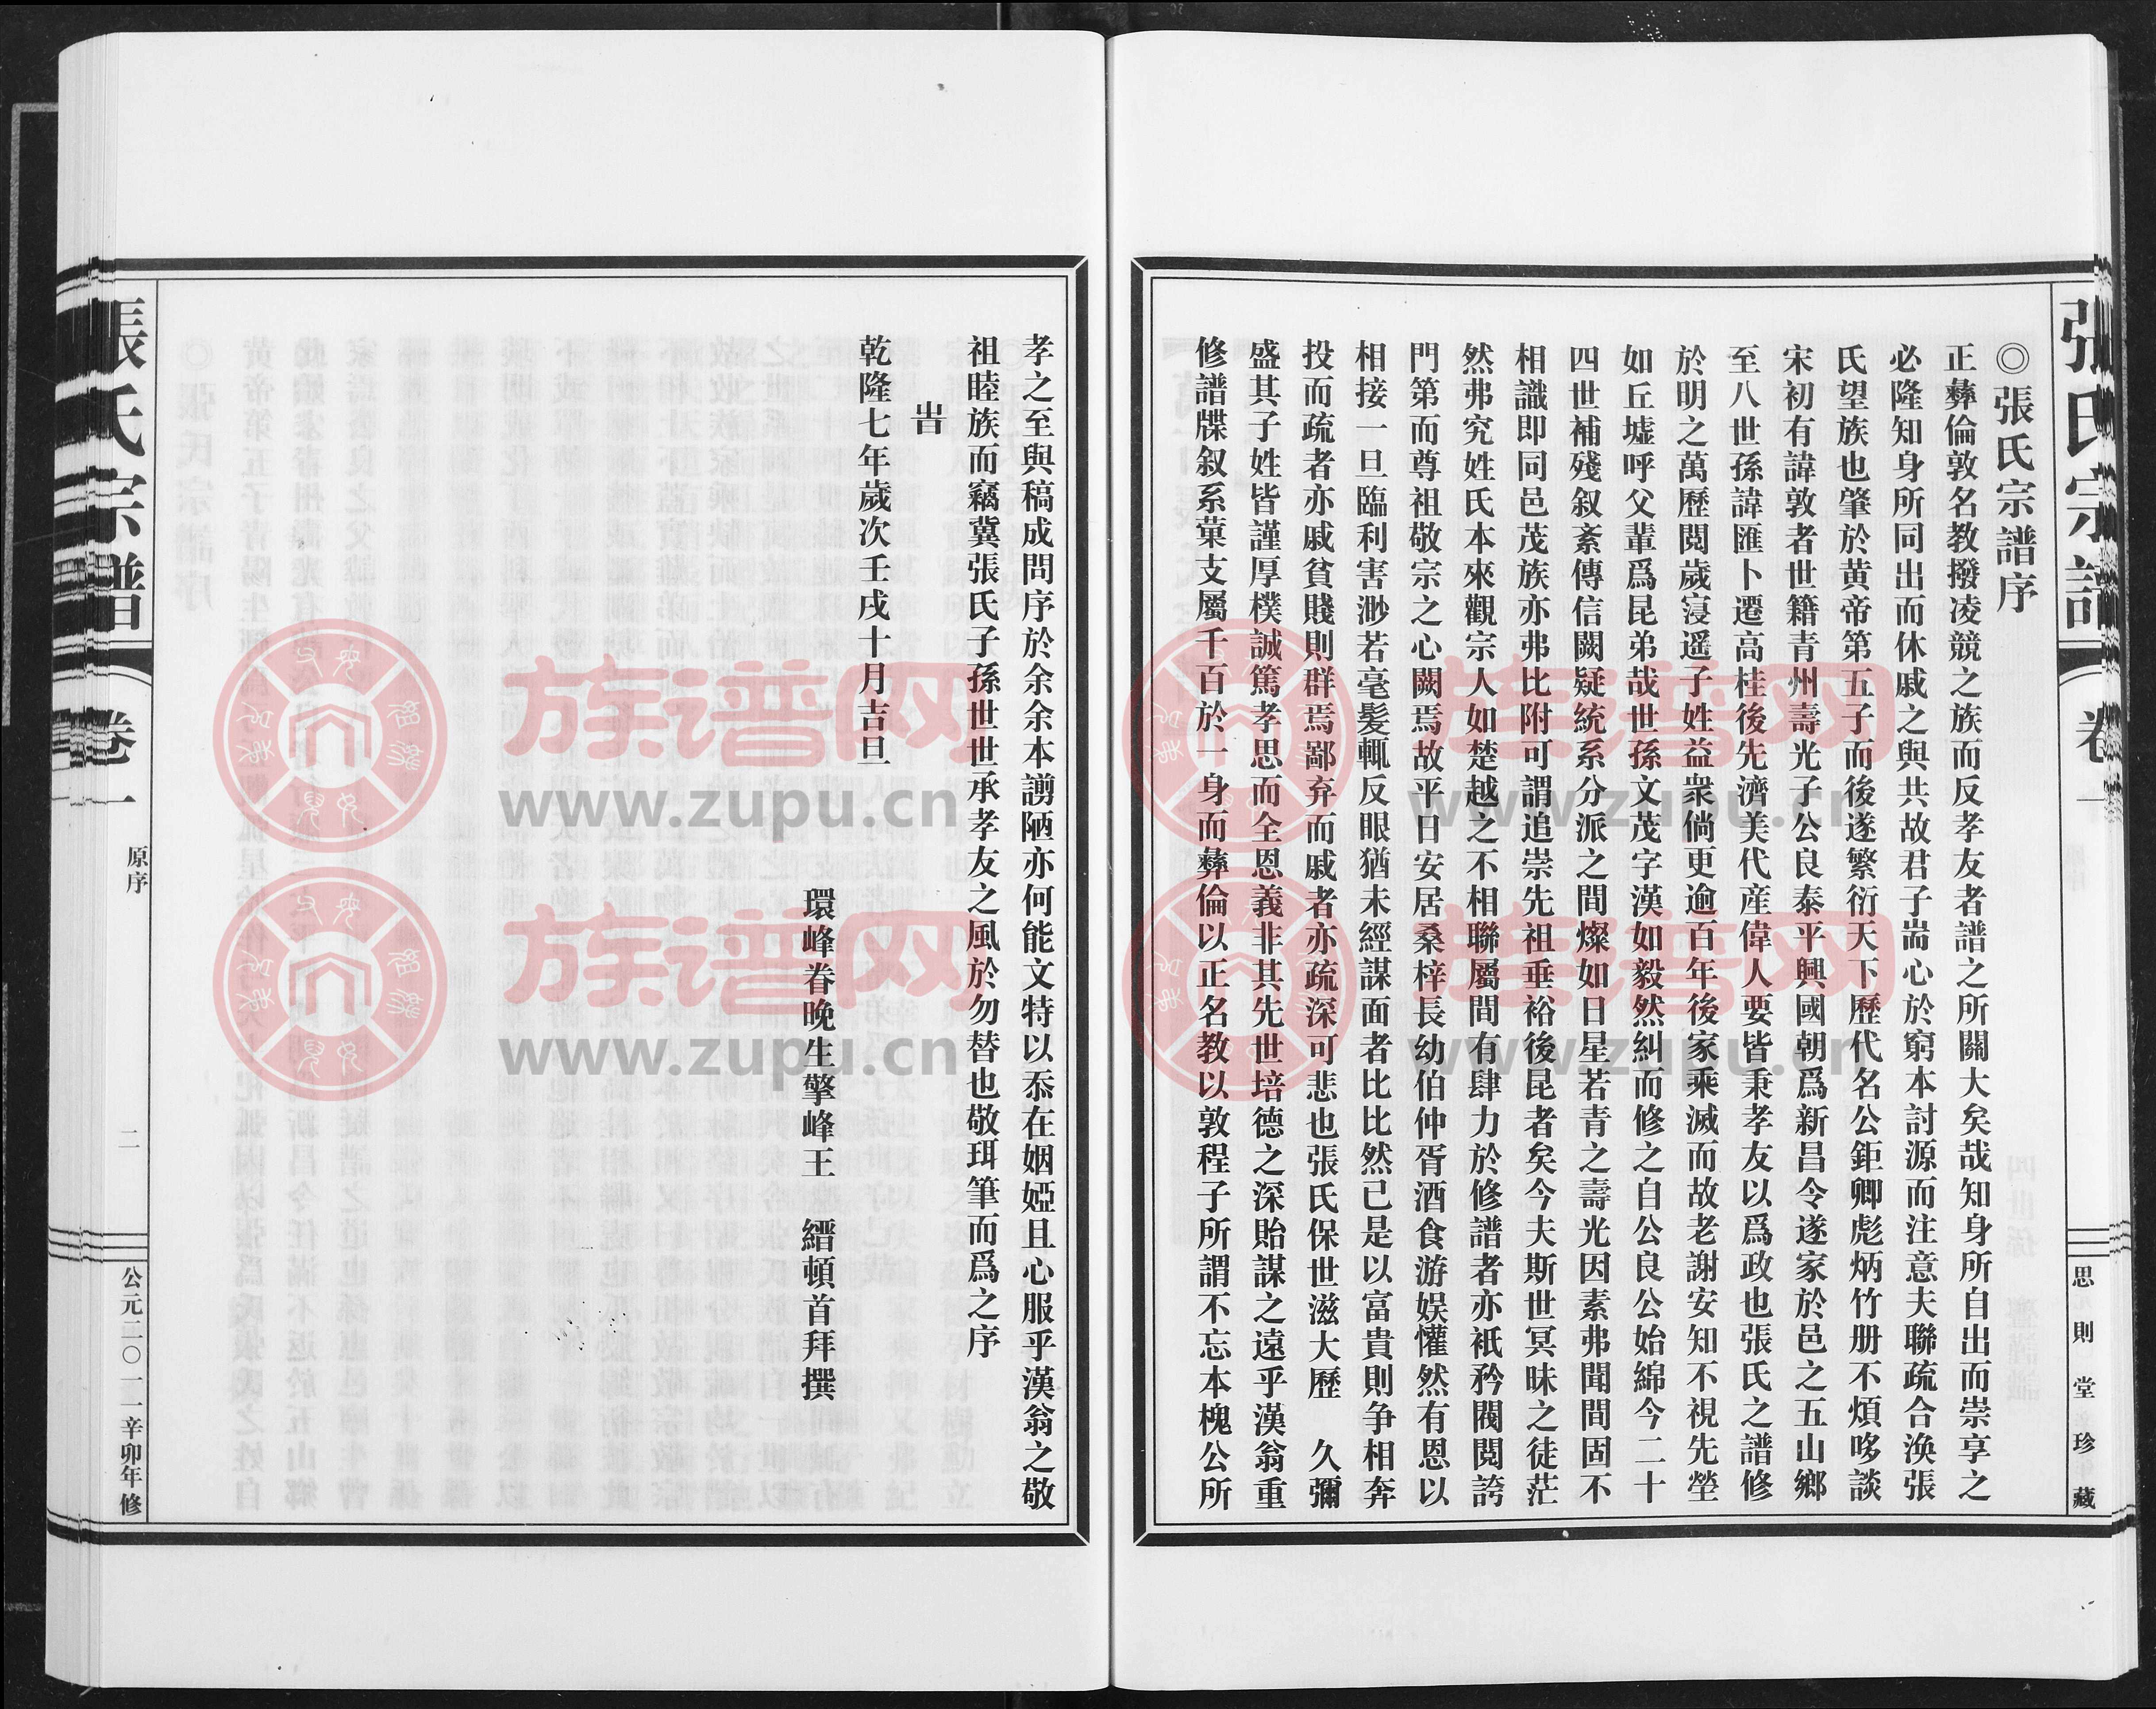 張氏宗譜
卷一
思則堂珍藏
◎張氏宗譜序
正彝倫敦名教撥凌競之族而反孝友者譜之所關大矣哉知身所自出而崇享之
必隆知身所同出而休戚之與共故君子耑心於窮本討源而注意夫聯疏合渙張
氏望族也肇於黃帝第五子而後遂繁衍天下歷代名公鉅卿彪炳竹册不煩哆談
宋初有諱敦者世籍青州壽光子公良泰平興國朝爲新昌令遂家於邑之五山鄉
至八世孫諱匯卜遷高桂後先濟美代産偉人要皆秉孝友以爲政也張氏之譜修
於明之萬歷閱歲寖遥子姓益衆倘更逾百年後家乘滅而故老謝安知不視先塋
如丘墟呼父輩爲昆弟哉世孫文茂字漢如毅然糾而修之自公良公始綿今二十
四世補殘叙紊傳信闕疑統系分派之間燦如日星若青之壽光因素弗聞間固不
相識即同邑茂族亦弗比附可謂追崇先祖垂裕後昆者矣今夫斯世冥昧之徒茫
然弗究姓氏本來觀宗人如楚越之不相聯屬間有肆力於修譜者亦衹矜閥閱誇
門第而尊祖敬宗之心闕焉故平日安居桑梓長幼伯仲胥酒食游娱懽然有恩以
相接一旦臨利害渺若毫髮輒反眼猶未經謀面者比比然已是以富貴則争相奔
投而疏者亦戚貧賤則群焉鄙弃而戚者亦疏深可悲也張氏保世滋大歷　久彌
盛其子姓皆謹厚樸誠篤孝思而全恩義非其先世培德之深貽謀之遠乎漢翁重
修譜牒叙系葉支屬千百於一身而彝倫以正名教以敦程子所謂不忘本槐公所
孝之至與稿成問序於余余本謭陋亦何能文特以忝在姻婭且心服乎漢翁之敬
祖睦族而竊冀張氏子孫世世承孝友之風於勿替也敬珥筆而爲之序
旹
乾隆七年歲次壬戌十月吉旦
環峰眷晚生擎峰王　縉頓首拜撰
張氏宗譜
卷一
原序
二
公元二〇一一辛卯年修
族谱网
www.zupu.cn
族谱网
www.zupu.cn
族谱网
www.zupu.cn
族谱网
www.zupu.cn